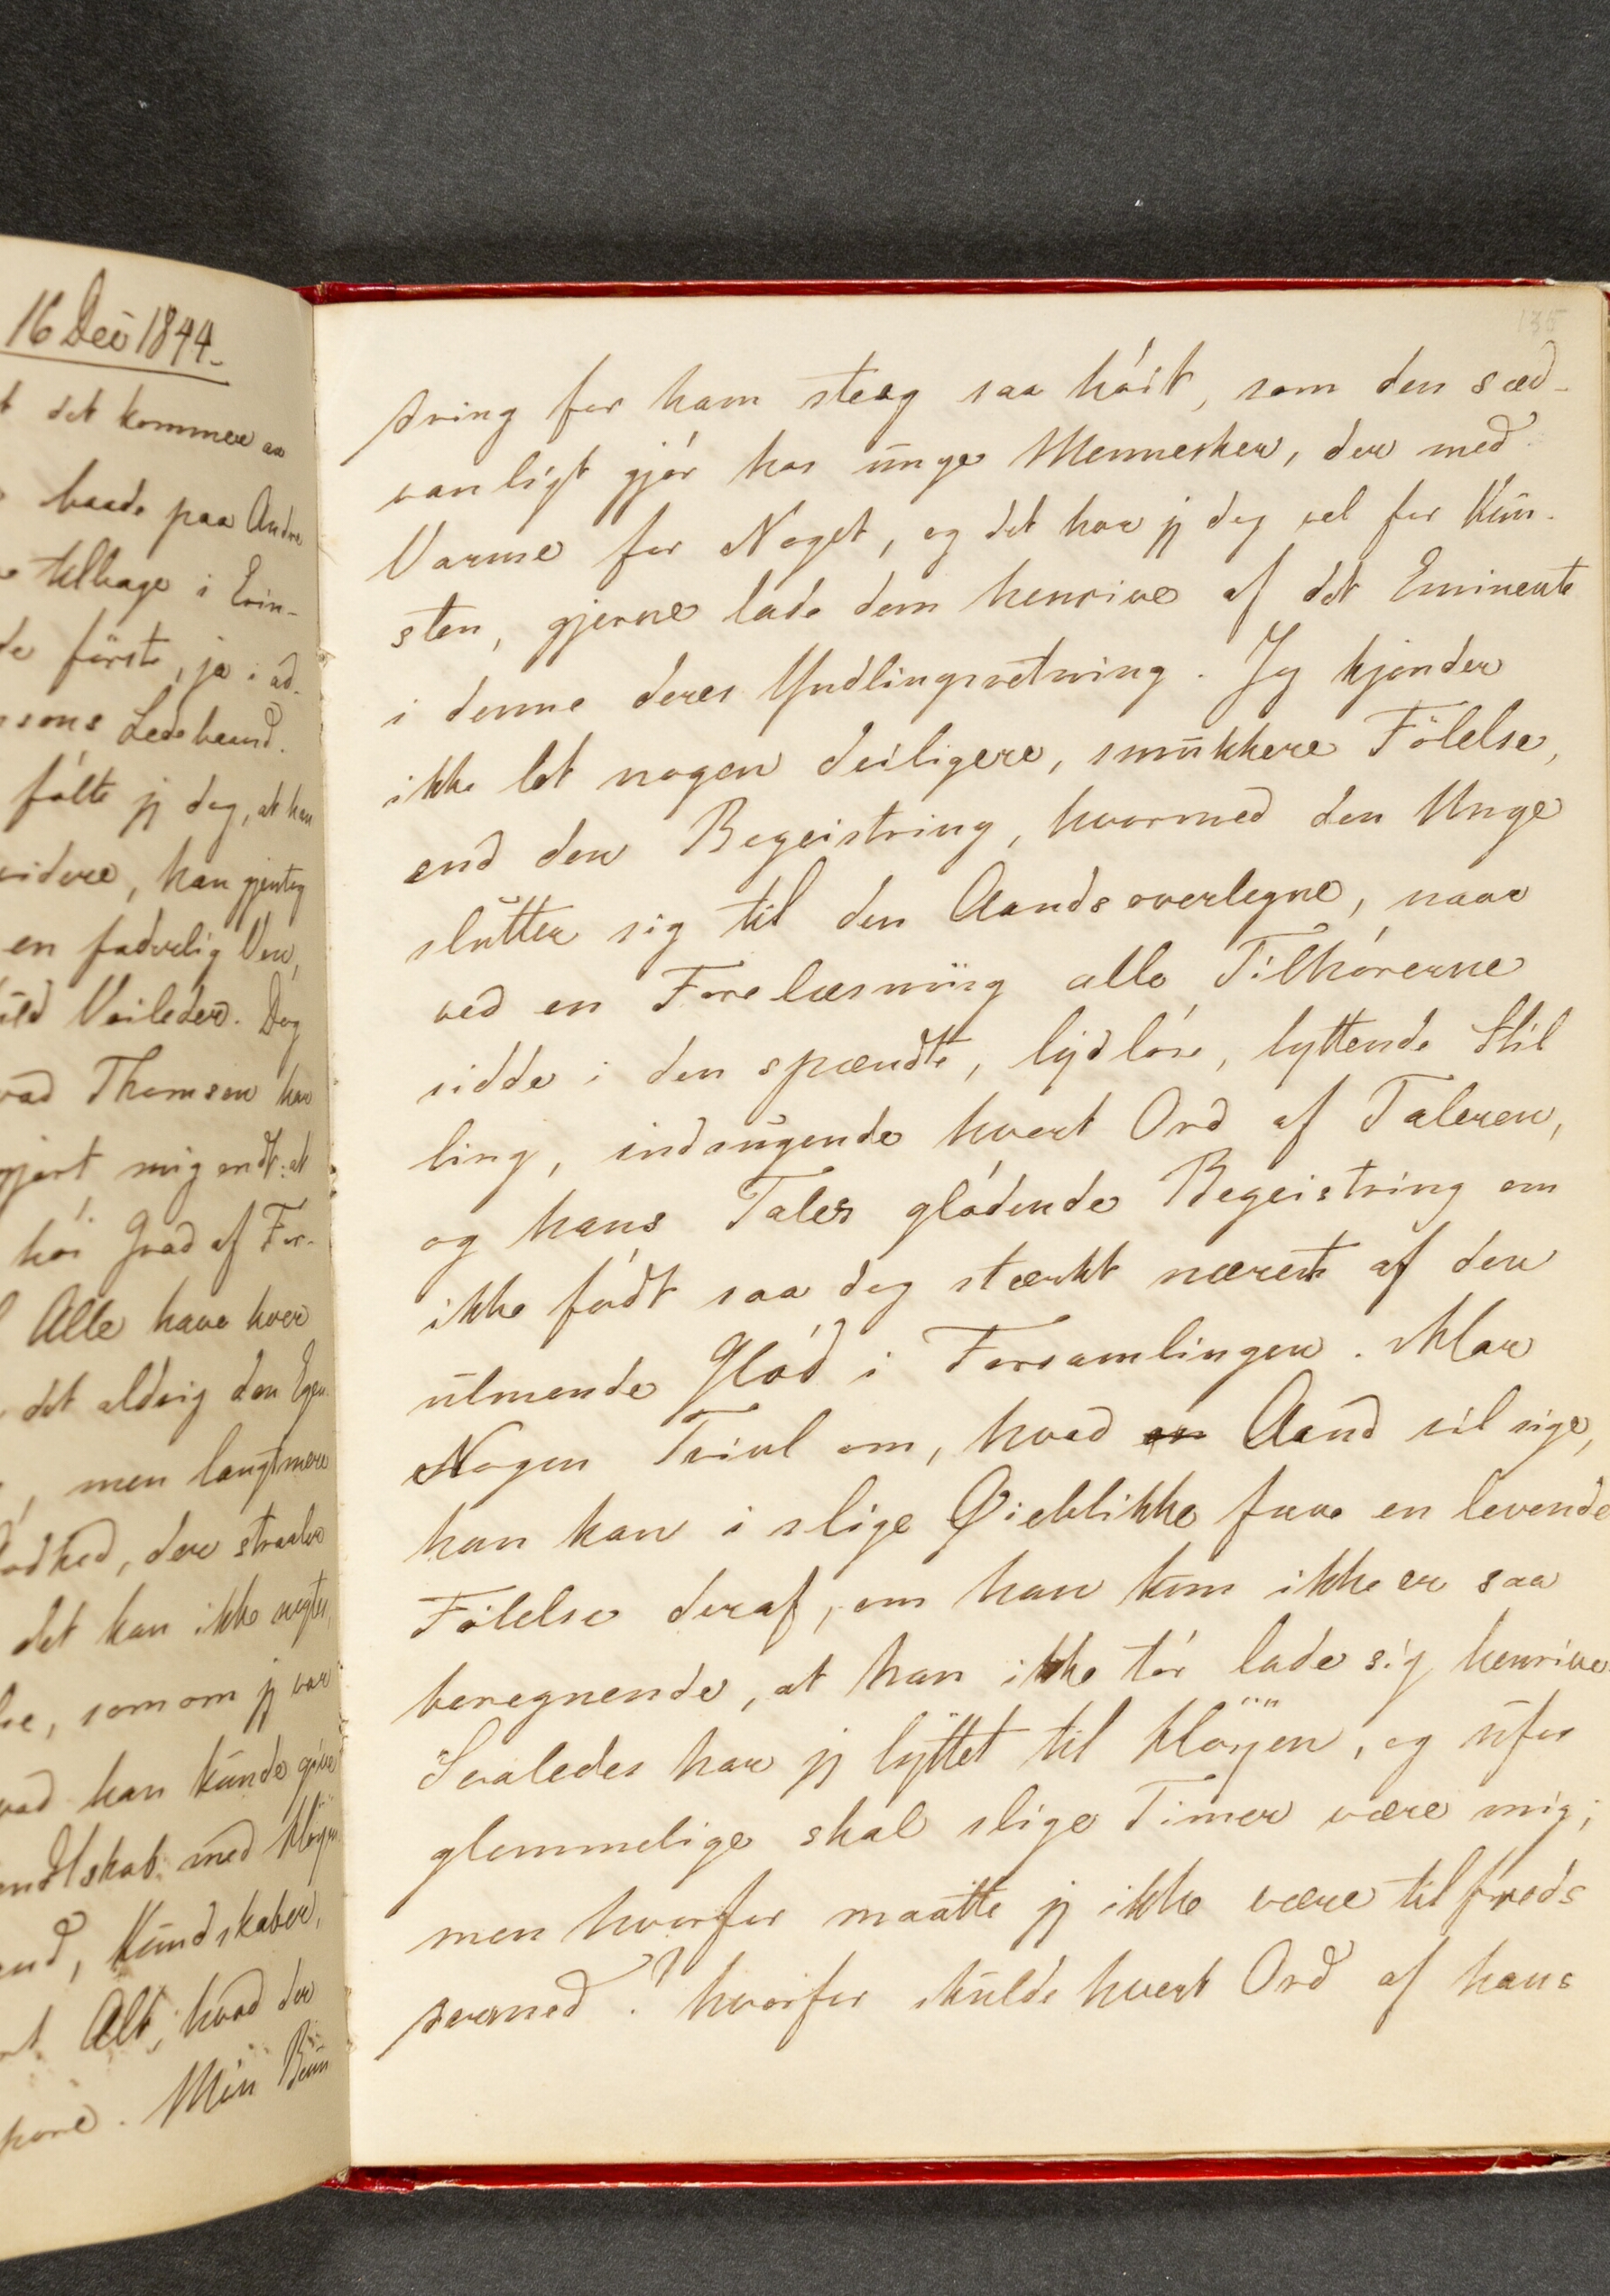 16 Dec 1844.
det kommer
baade paa Andre
tilbage i Erin-
förste, ja i
Ledebaand.
fólte jg dog, at han
videre, han gjentog
en faderlig Ven,
Veileder. Dog
Thomsen har
gjort mig ondt: at
hói Grad af For-
Alle have hver
det aldrig den Egen
, men langt mere
, der straaler
det kan ikke negtes,
, som om jg var
han kunde give
med Höyen
, Kundskaber,
Alt, hvad der
. Min Beun
135
dring for ham steeg saa hóit, som den sæd-
vanligt gjór hos unge Mennesker, der med
Varme for Noget, og det har jg dog vel for Kun-
sten, gjerne lade dem henrive af det Eminente
i denne deres Yndlingsretning. Jeg kjender
ikke let nogen deiligere, smukkere Fölelse,
end den Begeistring, hvormed den Unge
slutter sig til den Aandsoverlegne, naar
ved en Forelæsning alle Tilhórerne
sidde i den spændte, lydlóse, lyttende Stil
ling, indsugende hvert Ord af Taleren,
og hans Tales glódende Begeistring om
ikke fódt saa dog stærkt næret af den
ulmende Glód i Forsamlingen. Har
Nogen Tvivl om, hvad en Aand vil sige,
han kan i slige Øieblikke faae en levende
Fólelse deraf, om han kun ikke er saa
beregnende, at han ikke tór lade sig henrive
Saaledes har jg lyttet til Höyen, og ufor
glemmelige skal slige Timer være mig;
men hvorfor maatte jg ikke være tilfreds
dermed? hvorfor skulde hvert Ord af hans